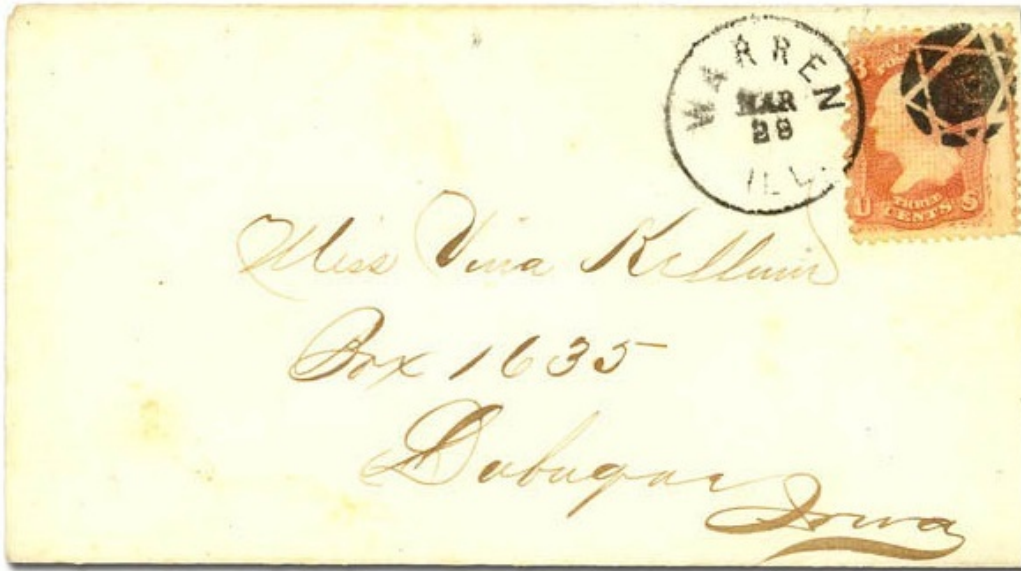 WARREN
MAR
28
ILL.
3
U
THREE
CENTS
S
Miss Vina Kellum
Box 1635
Dubuque
Iowa